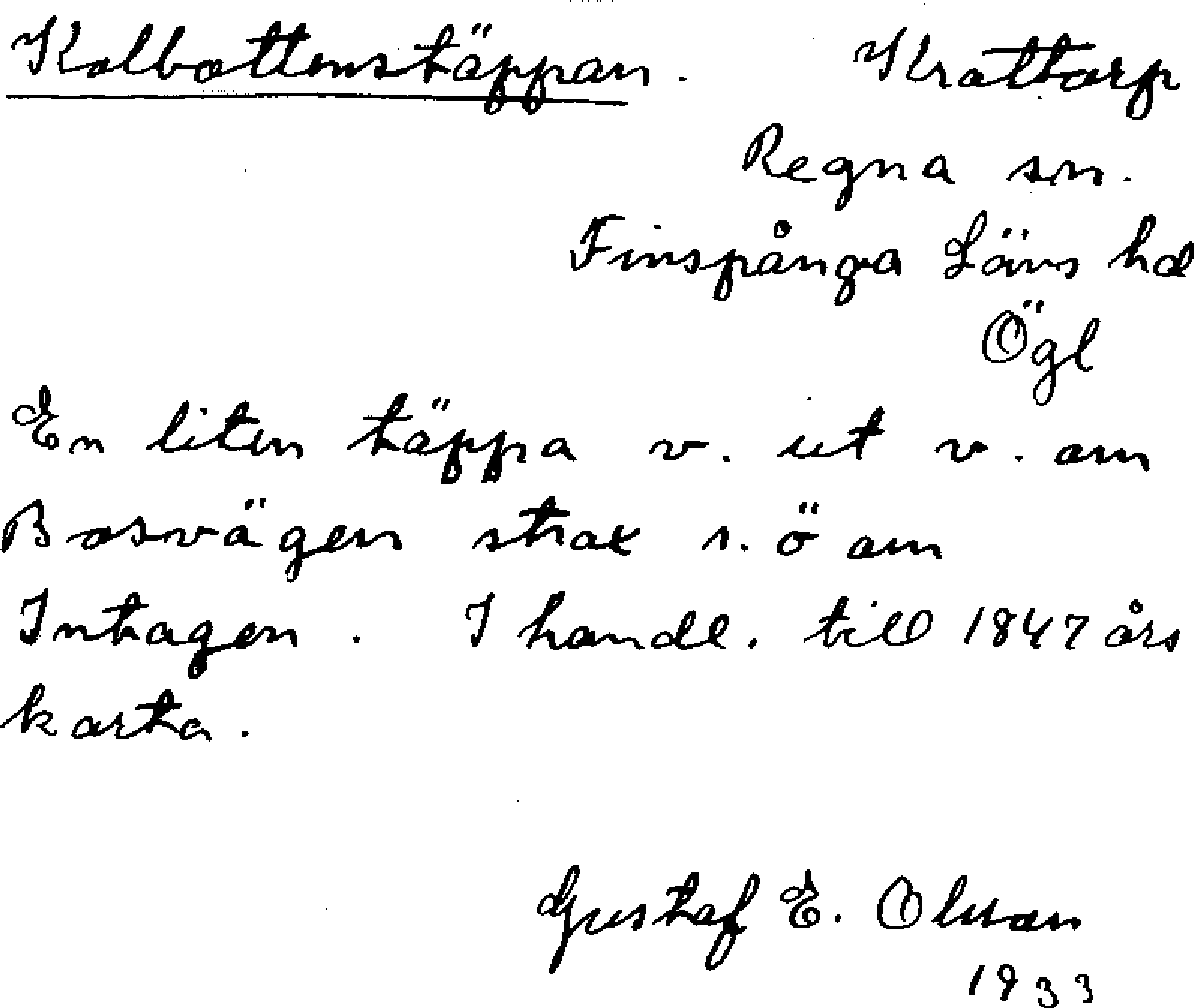 Kolbottenstäppan. Krattorp
Regna sn.
Finspånga Läns hd
Ögl
En liten täppa v. ut v. om
Bosvägen strax s. ö om
Inhagen. I handl. till 1847 års
karta.
Gustaf E. Olsson
1933